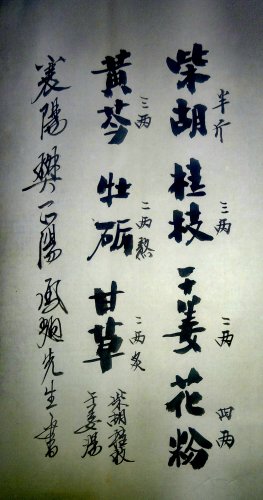 柴胡半斤桂枝三两干姜二两花粉四两
黃芩三两牡砺二两熬甘草二两炙
柴胡桂枝
干姜湯
襄陽樊正陽先生書